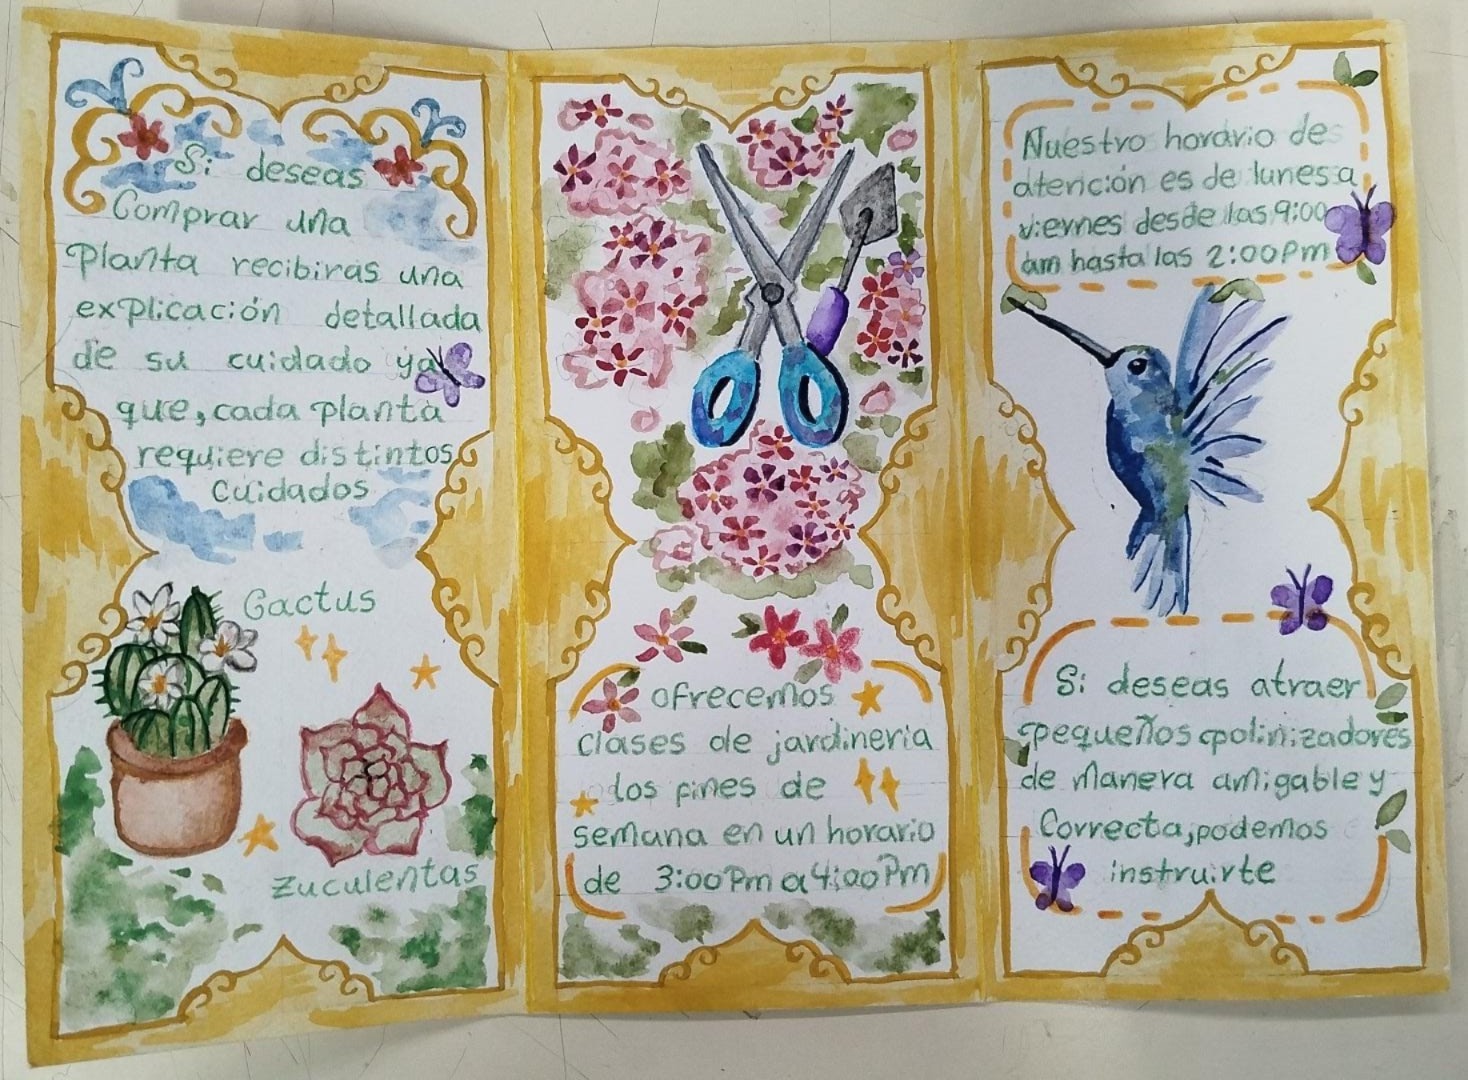 Si deseas
Comprar una
Planta recibiras una
explicación detallada
de su cuidado ya
que, cada planta
requiere distintos
cuidados
Cactus
Zuculentas
ofrecemos
clases de jardineria
los fines de
semana en un horario
de 3:00 Pm a 4:00 Pm
Nuestro horario de
atención es de lunes a
viernes desde las 9:00
am hasta las 2:00 Pm
Si deseas atraer
pequeños polinizadores
de manera amigable y
Correcta, podemos
instruirte